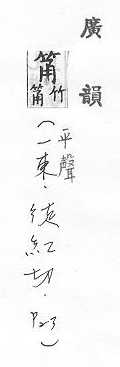 廣韻
筩
竹
筩
(平聲
一東.徒紅切.P23)